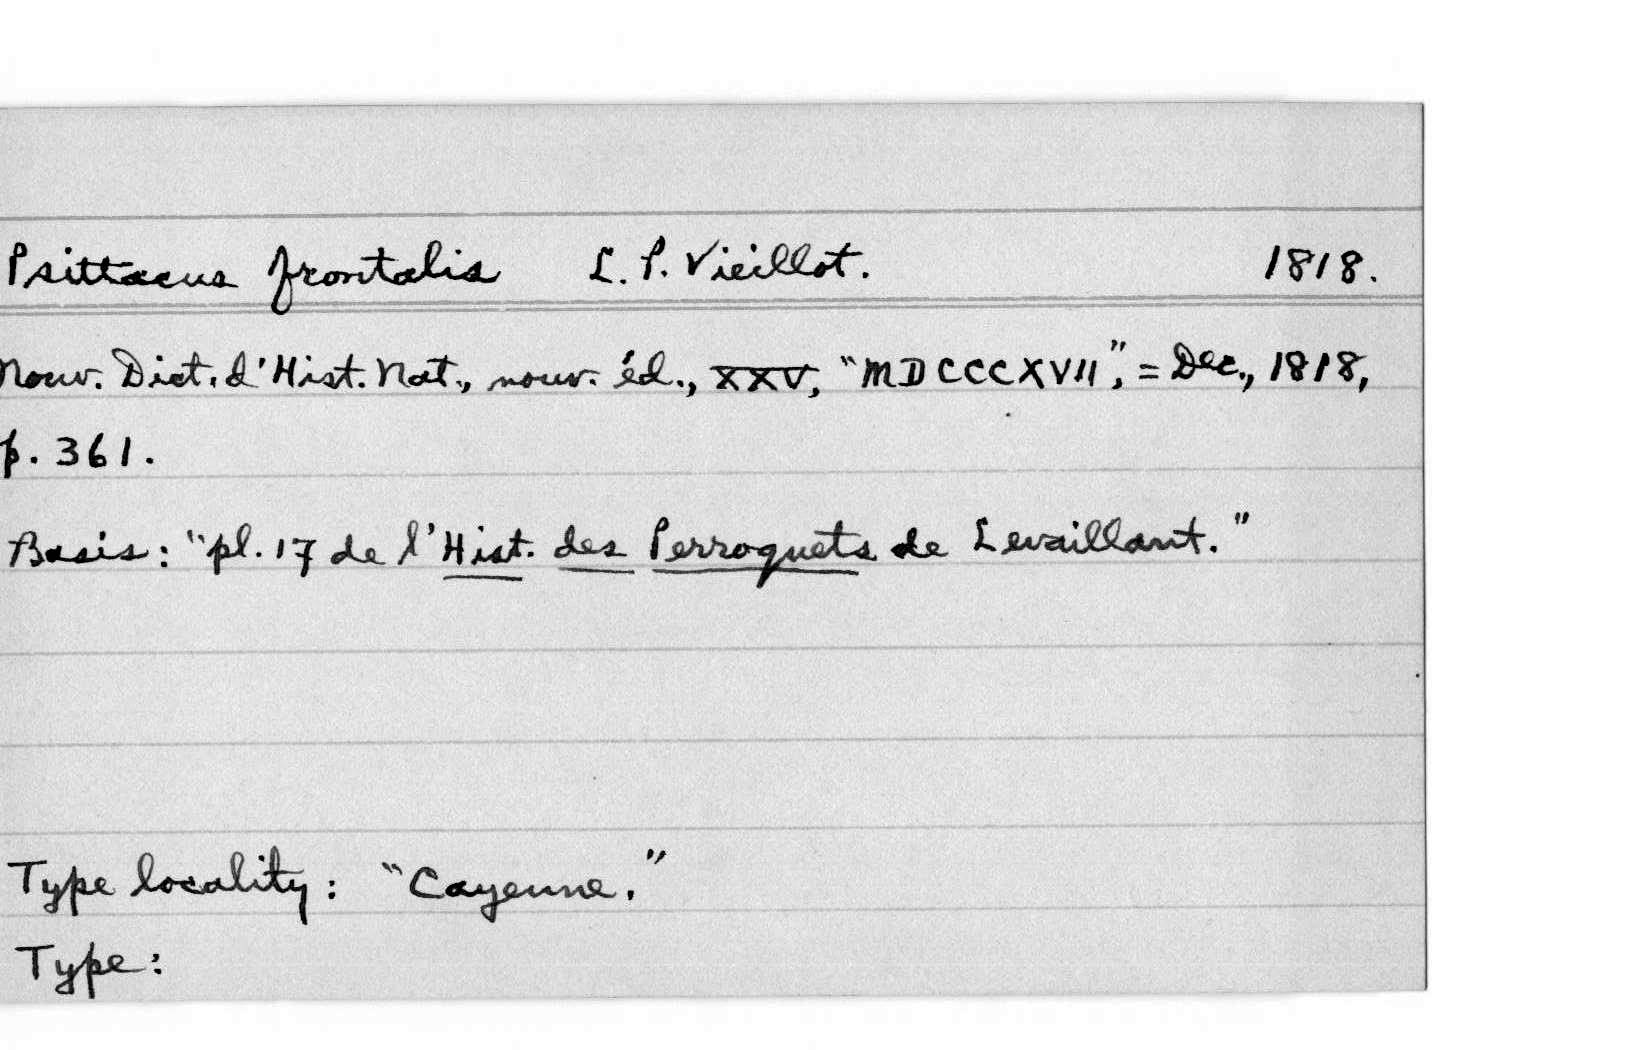 Psittacus frontalis L. P. Vieillot. 1818.
Nouv. Dict. d'Hist. Nat., nouv. éd., XXV, "MDCCCXVII", = Dec., 1818,
p. 361.
Basis: "pl. 17 de l'Hist. des Perroquets de Levaillant."
Type locality: "Cayenne."
Type: